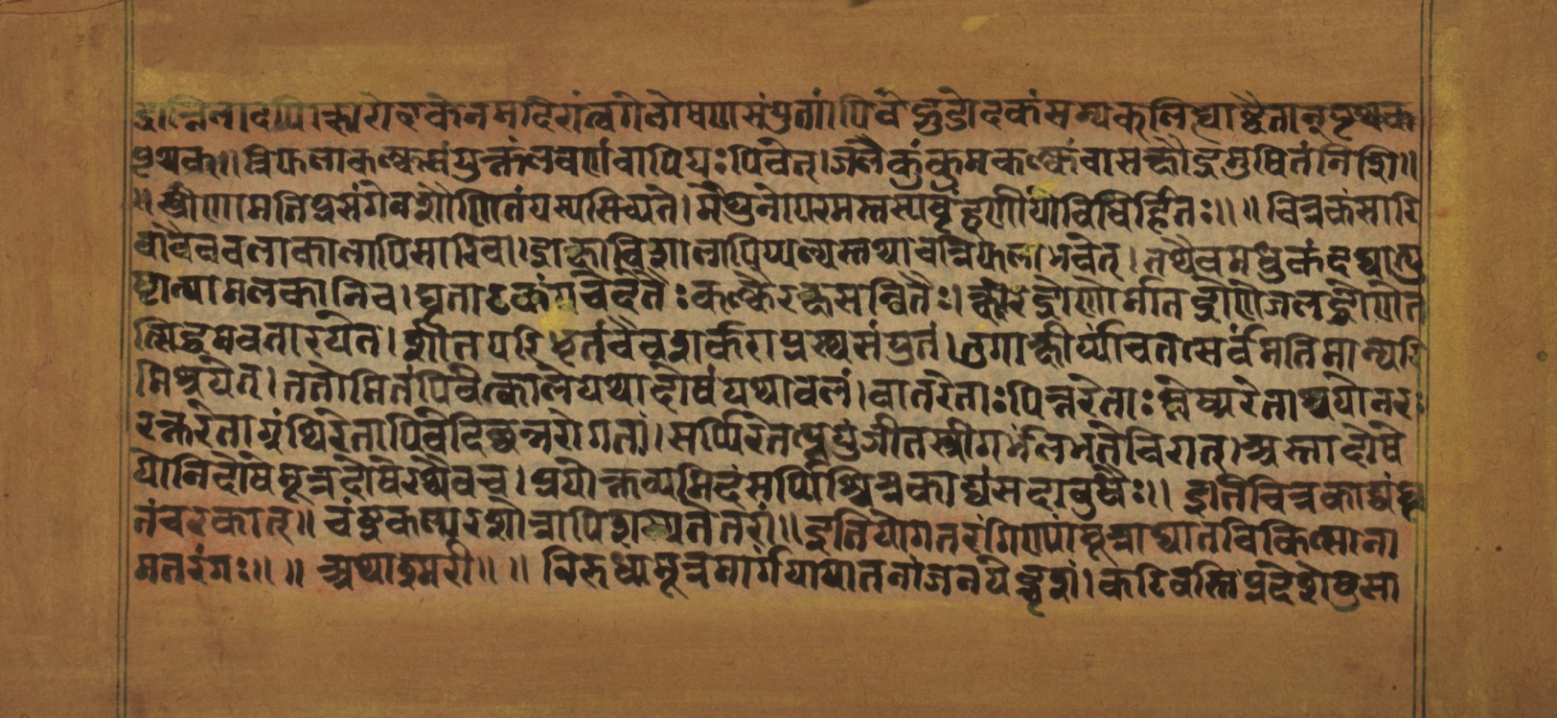 द्राक्षिनादपि।क्षारोदकेनमदिरांत्वगेलोषणसंयुतां।पिवेद्गुडोदकंसम्यक्लिह्याद्वैतान्पृथक्
पृथक्॥त्रिफलाकल्कसंयुक्तंलवणंवापियःपिवेत्।जलेकुंकुमकल्कंवासक्षौद्रमुषितंनिशि॥
॥स्त्रीणामतिप्रसंगेनशोणितंयस्यसिच्यते।मैथुनोपरमस्तस्यबृंहणीयोविधिर्हितः॥॥चित्रकंसारि
वाचैवबलाकालापिसारिवा।द्राक्षाविशालापिप्पल्यस्तथाचत्रिफलाभवेत्।तथैवमधुकंदद्याद्द
द्यात्यामलकानिच।घृताढकंपचेदेतैःकल्कैरक्षसन्वितैः।क्षीरद्रोणार्मातद्रोणेजलद्रोणेत
त्सिद्धमवतारयेत्।शीतपरिश्रुतंचैवशर्कराप्रस्थसंयुतं।तुगाक्षीर्य्याचतत्सर्वंमतिमान्परि
मिश्रयेत्।ततोमितंपिवेत्कालेयथादोषंयथावलं।वातरेताःपित्तरेताःश्लेष्मरेताश्चयोनरः
रक्तरेताग्रंथिरेतापिवेदिच्छन्नरोगतां।सर्पिरेतत्प्रयुंजीतस्त्रीगर्भंलभतेचिरात्।अस्तादोषे
योनिदोषेमूत्रदोषेतथैवच।प्रयोक्तव्यमिदंसर्पिश्चित्रकाद्यंसदाबुधैः॥इतिचित्रकाद्यंघृ
तंचरकात्॥चंद्रकल्पूरशोत्रापिशस्यतेतरां॥इतियोगतरंगिण्यांमूत्राघातचिकित्सोना
मतरंगः॥॥अथाश्मरी॥॥निरुध्यामूत्रमार्गंयायातनांजनयेद्भृशं।कटिवस्तिप्रदेशेषुसा